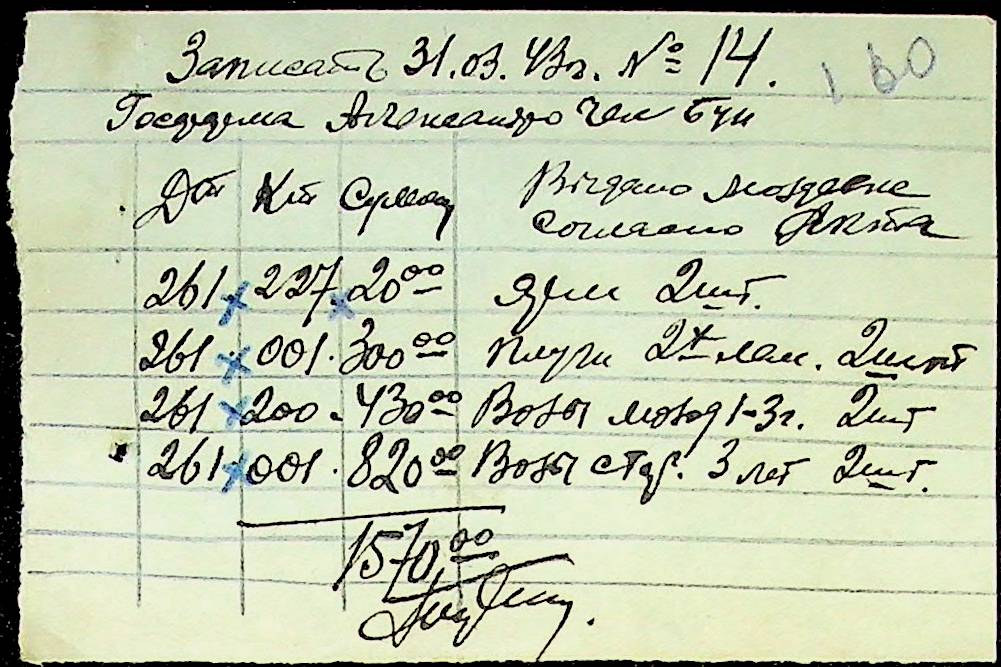 Записать 31.03.43г. № 14.
160
Александро Чел Бун
Дт Кт Сумма Выдано молдавке
согласно Акта
261 227. 20 00 Ярм 2шт.
261 001. 300 00 Плуги 2х лем. 2шт
261 200. 430 00 Волы молод 1-3г. 2шт
261 001. 820 00 Волы стар. 3 лет 2шт.
1570,00